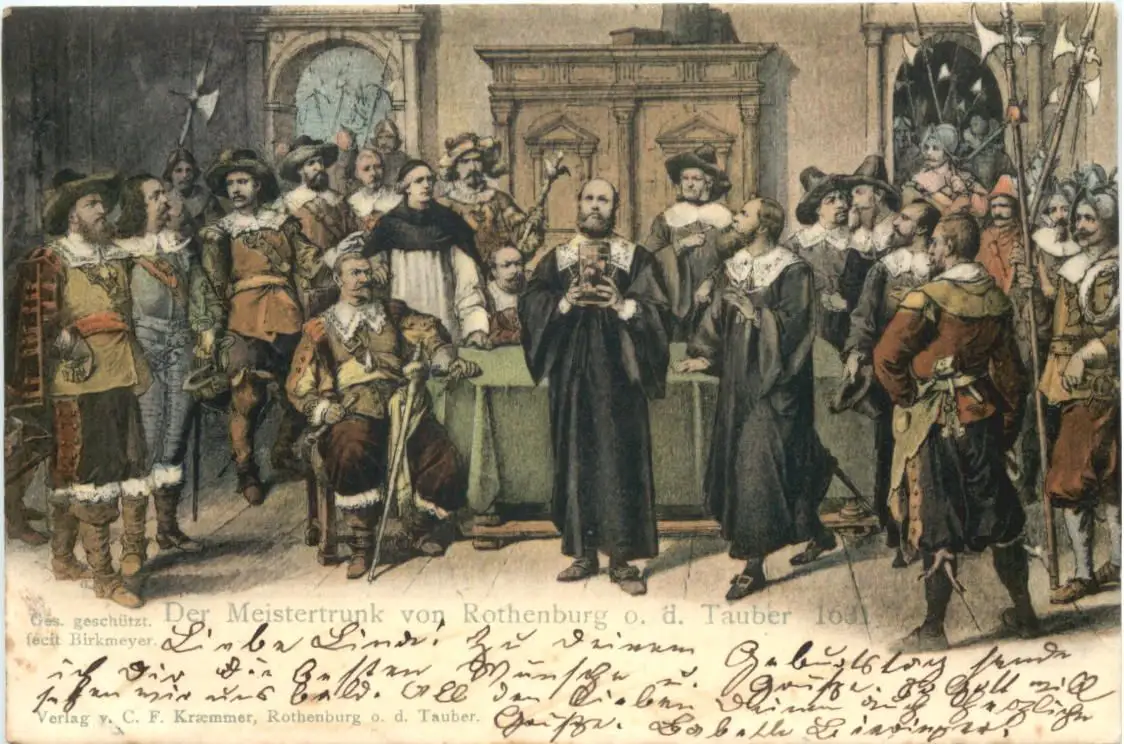 Ges. geschützt.
fecit Birkmeyer.
Der Meistertrunk von Rothenburg o. d. Tauber 1631
Liebe Linde! Zu Deinem Geburtstag sende
ich Dir die besten Wünsche u. Grüße. So Gott will
sehen wir uns bald. All den Lieben Deinen auch herzliche
Grüße. Babette
Verlag v. C. F. Kræmmer, Rothenburg o. d. Tauber.